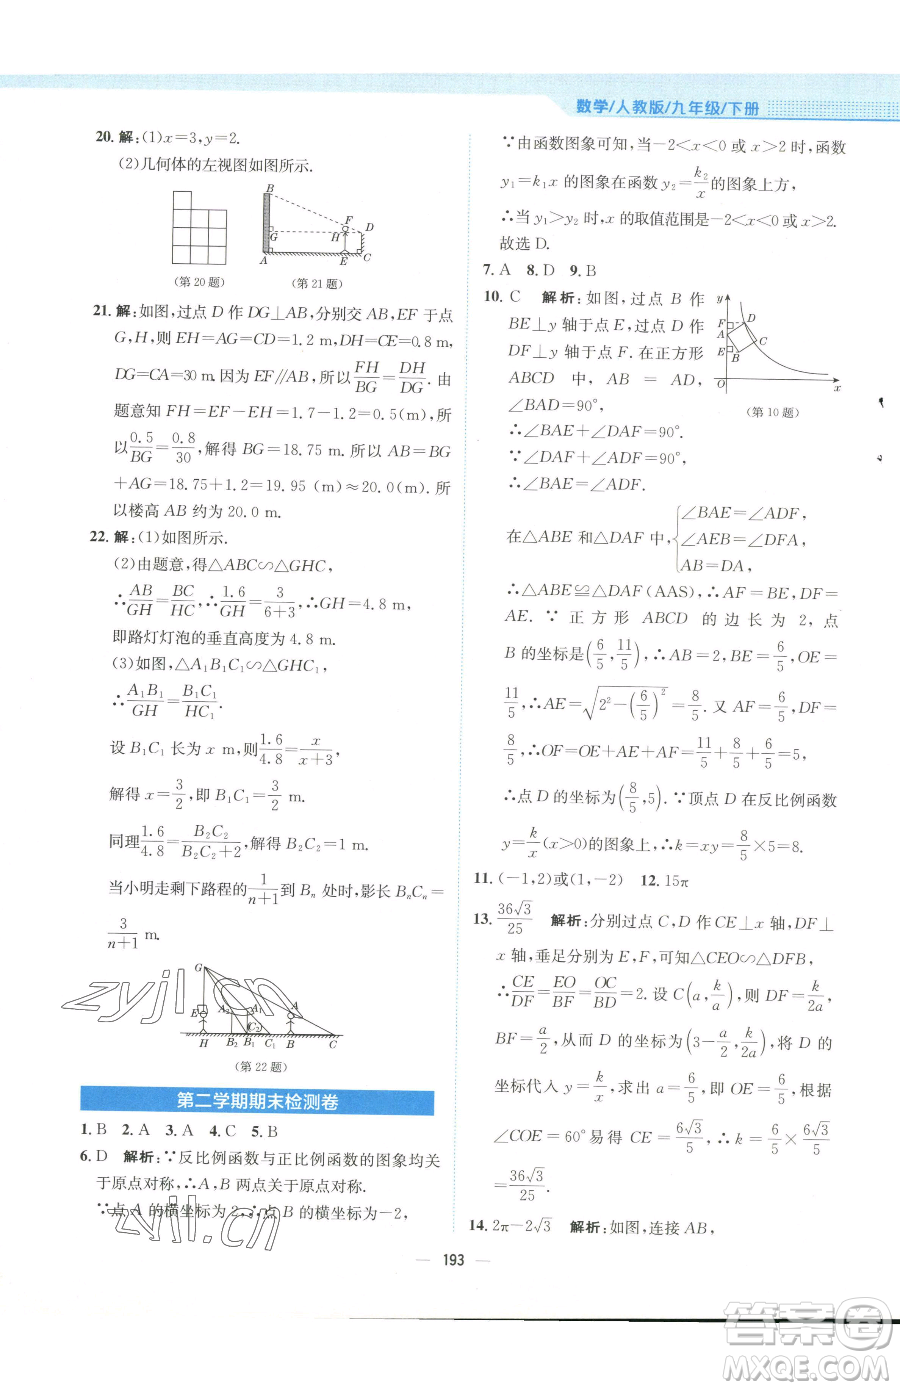 数学/人教版/九年级/下册
20. 解:(1)x=3,y=2.
(2)几何体的左视图如图所示.
B
F
D
G
H
A
E
C
(第20题)
(第21题)
21. 解:如图,过点 D 作 DG⊥AB,分别交 AB,EF 于点
G,H,则 EH=AG=CD=1.2 m,DH=CE=0.8 m,
DG=CA=30 m.因为 EF∥AB,所以 FH/BG=DH/DG.由
题意知 FH=EF-EH=1.7-1.2=0.5(m),所
以 0.5/BG=0.8/30,解得 BG=18.75 m.所以 AB=BG
+AG=18.75+1.2=19.95 (m)≈20.0(m).所
以楼高 AB 约为 20.0 m.
22. 解:(1)如图所示.
(2)由题意,得△ABC∽△GHC,
∴AB/GH=BC/HC,∴1.6/GH=3/(6+3),∴GH=4.8 m,
即路灯灯泡的垂直高度为 4.8 m.
(3)如图,△A₁B₁C₁∽△GHC₁,
∴A₁B₁/GH=B₁C₁/HC₁.
设 B₁C₁ 长为 x m,则1.6/4.8=x/(x+3),
解得 x=3/2,即 B₁C₁=3/2 m.
同理1.6/4.8=B₂C₂/(B₂C₂+2),解得 B₂C₂=1 m.
当小明走剩下路程的1/(n+1)到 Bₙ 处时,影长 BₙCₙ=
3/(n+1) m.
G
E
A₂
A₁
A
(C₂)
H
B₂
B₁
C₁
B
C
(第22题)
第二学期期末检测卷
1. B 2. A 3. A 4. C 5. B
6. D 解析:∵反比例函数与正比例函数的图象均关
于原点对称,∴A,B 两点关于原点对称.
∵点 A 的横坐标为 2,∴点 B 的横坐标为-2,
∵由函数图象可知,当-2<x<0 或 x>2 时,函数
y₁=k₁x 的图象在函数 y₂=k₂/x的图象上方,
∴当 y₁>y₂ 时,x 的取值范围是-2<x<0 或 x>2.
故选 D.
7. A 8. D 9. B
10. C 解析:如图,过点 B 作
BE⊥y 轴于点 E,过点 D 作
DF⊥y 轴于点 F. 在正方形
ABCD 中, AB = AD,
∠BAD=90°,
y
F
D
A
C
E
B
O
x
(第10题)
∴∠BAE+∠DAF=90°.
∵∠DAF+∠ADF=90°,
∴∠BAE=∠ADF.
在△ABE 和△DAF 中, { ∠BAE=∠ADF,
∠AEB=∠DFA,
AB=DA,
∴△ABE≌△DAF (AAS),∴AF=BE,DF=
AE. ∵ 正方形 ABCD 的边长为 2,点
B 的坐标是(6/5,11/5),∴AB=2,BE=6/5,OE=
11/5,∴AE=√(2²-(6/5)²)=8/5.又 AF=6/5,DF=
8/5,∴OF=OE+AE+AF=11/5+8/5+6/5=5,
∴点 D 的坐标为(8/5,5).∵顶点 D 在反比例函数
y=k/x(x>0)的图象上,∴k=xy=8/5×5=8.
11. (-1,2)或(1,-2) 12. 15π
13. 36√3/25 解析:分别过点 C,D 作 CE⊥x 轴,DF⊥
x 轴,垂足分别为 E,F,可知△CEO∽△DFB,
∴CE/DF=EO/BF=OC/BD=2. 设 C(a,k/a),则 DF=k/2a,
BF=a/2,从而 D 的坐标为(3-a/2,k/2a),将 D 的
坐标代入 y=k/x,求出 a=6/5,即 OE=6/5,根据
∠COE=60°易得 CE=6√3/5,∴k=6/5×6√3/5=
36√3/25.
14. 2π-2√3 解析:如图,连接 AB,
193
zyjl.cn
zyjl.cn
答案圈
MXQE.COM